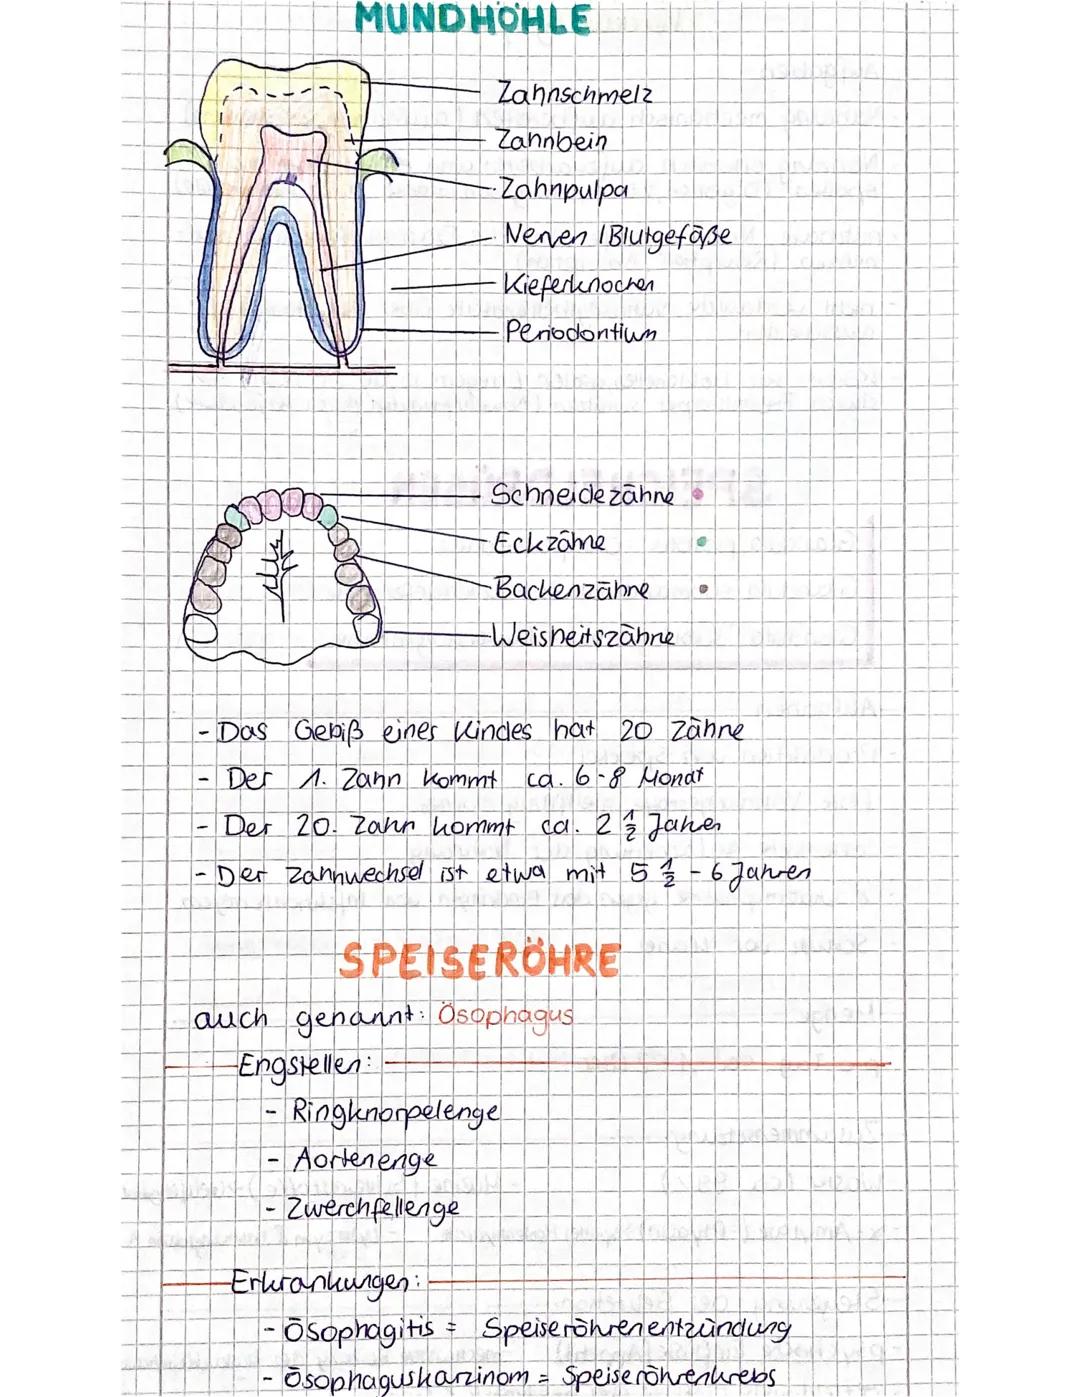 MUNDHÖHLE
Zahnschmelz
Zahnbein
Zahnpulpa
Nerven / Blutgefäße
Kieferknochen
Periodontium
Schneidezähne
Eckzähne
Backenzähne
Weisheitszähne
- Das Gebiß eines Kindes hat 20 Zähne
- Der 1. Zahn kommt ca. 6-8 Monat
- Der 20. Zahn kommt ca. 2 1/2 Jahren
- Der Zahnwechsel ist etwa mit 5 1/2 - 6 Jahren
SPEISERÖHRE
auch genannt: Ösophagus
Engstellen:
- Ringknorpelenge
- Aortenenge
- Zwerchfellenge
Erkrankungen:
- Ösophagitis = Speiseröhrenentzündung
- Ösophaguskarzinom = Speiseröhrenkrebs